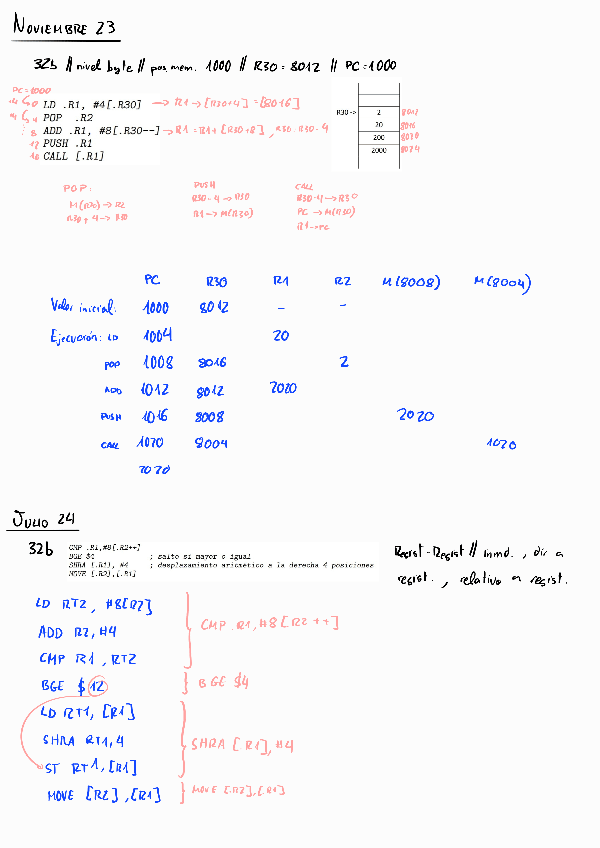 NOVIEMBRE 23
32b // nivel byte // pos. mem. 1000 // R30 = 8012 // PC = 1000
PC = 1000
+4 0 LD .R1, #4[.R30] → R1 → [R30+4] = [8016]
+4 4 POP .R2
8 ADD .R1, #8[.R30--] → R1 = R1 + [R30+8], R30 = R30 - 4
12 PUSH .R1
16 CALL [.R1]
R30 -> 2 8012
20 8016
200 8020
2000 8024
POP:
M(R30) → R2
R30 + 4 → R30
PUSH
R30 - 4 → R30
R1 → M(R30)
CALL
R30 - 4 → R30
PC → M(R30)
R1 → PC
PC R30 R1 R2 M(8008) M(8004)
Valor inicial: 1000 8012 - -
Ejecución: LD 1004 20
POP 1008 8016 2
ADD 1012 8012 2020
PUSH 1016 8008 2020
CALL 1020 8004 1020
2020
JULIO 24
32b
CMP .R1,#8[.R2++]
BGE $4 ; salto si mayor o igual
SHRA [.R1], #4 ; desplazamiento aritmetico a la derecha 4 posiciones
MOVE [.R2],[.R1]
Regist-Regist // inmd., dir a
regist., relativo a regist.
LD RT2, #8[R2]
ADD R2, #4
CMP R1, RT2
CMP .R1, #8[R2++]
BGE $12
BGE $4
LD RT1, [R1]
SHRA RT1, 4
ST RT1, [R1]
SHRA [R1], #4
MOVE [R2], [R1]
MOVE [.R2], [R1]